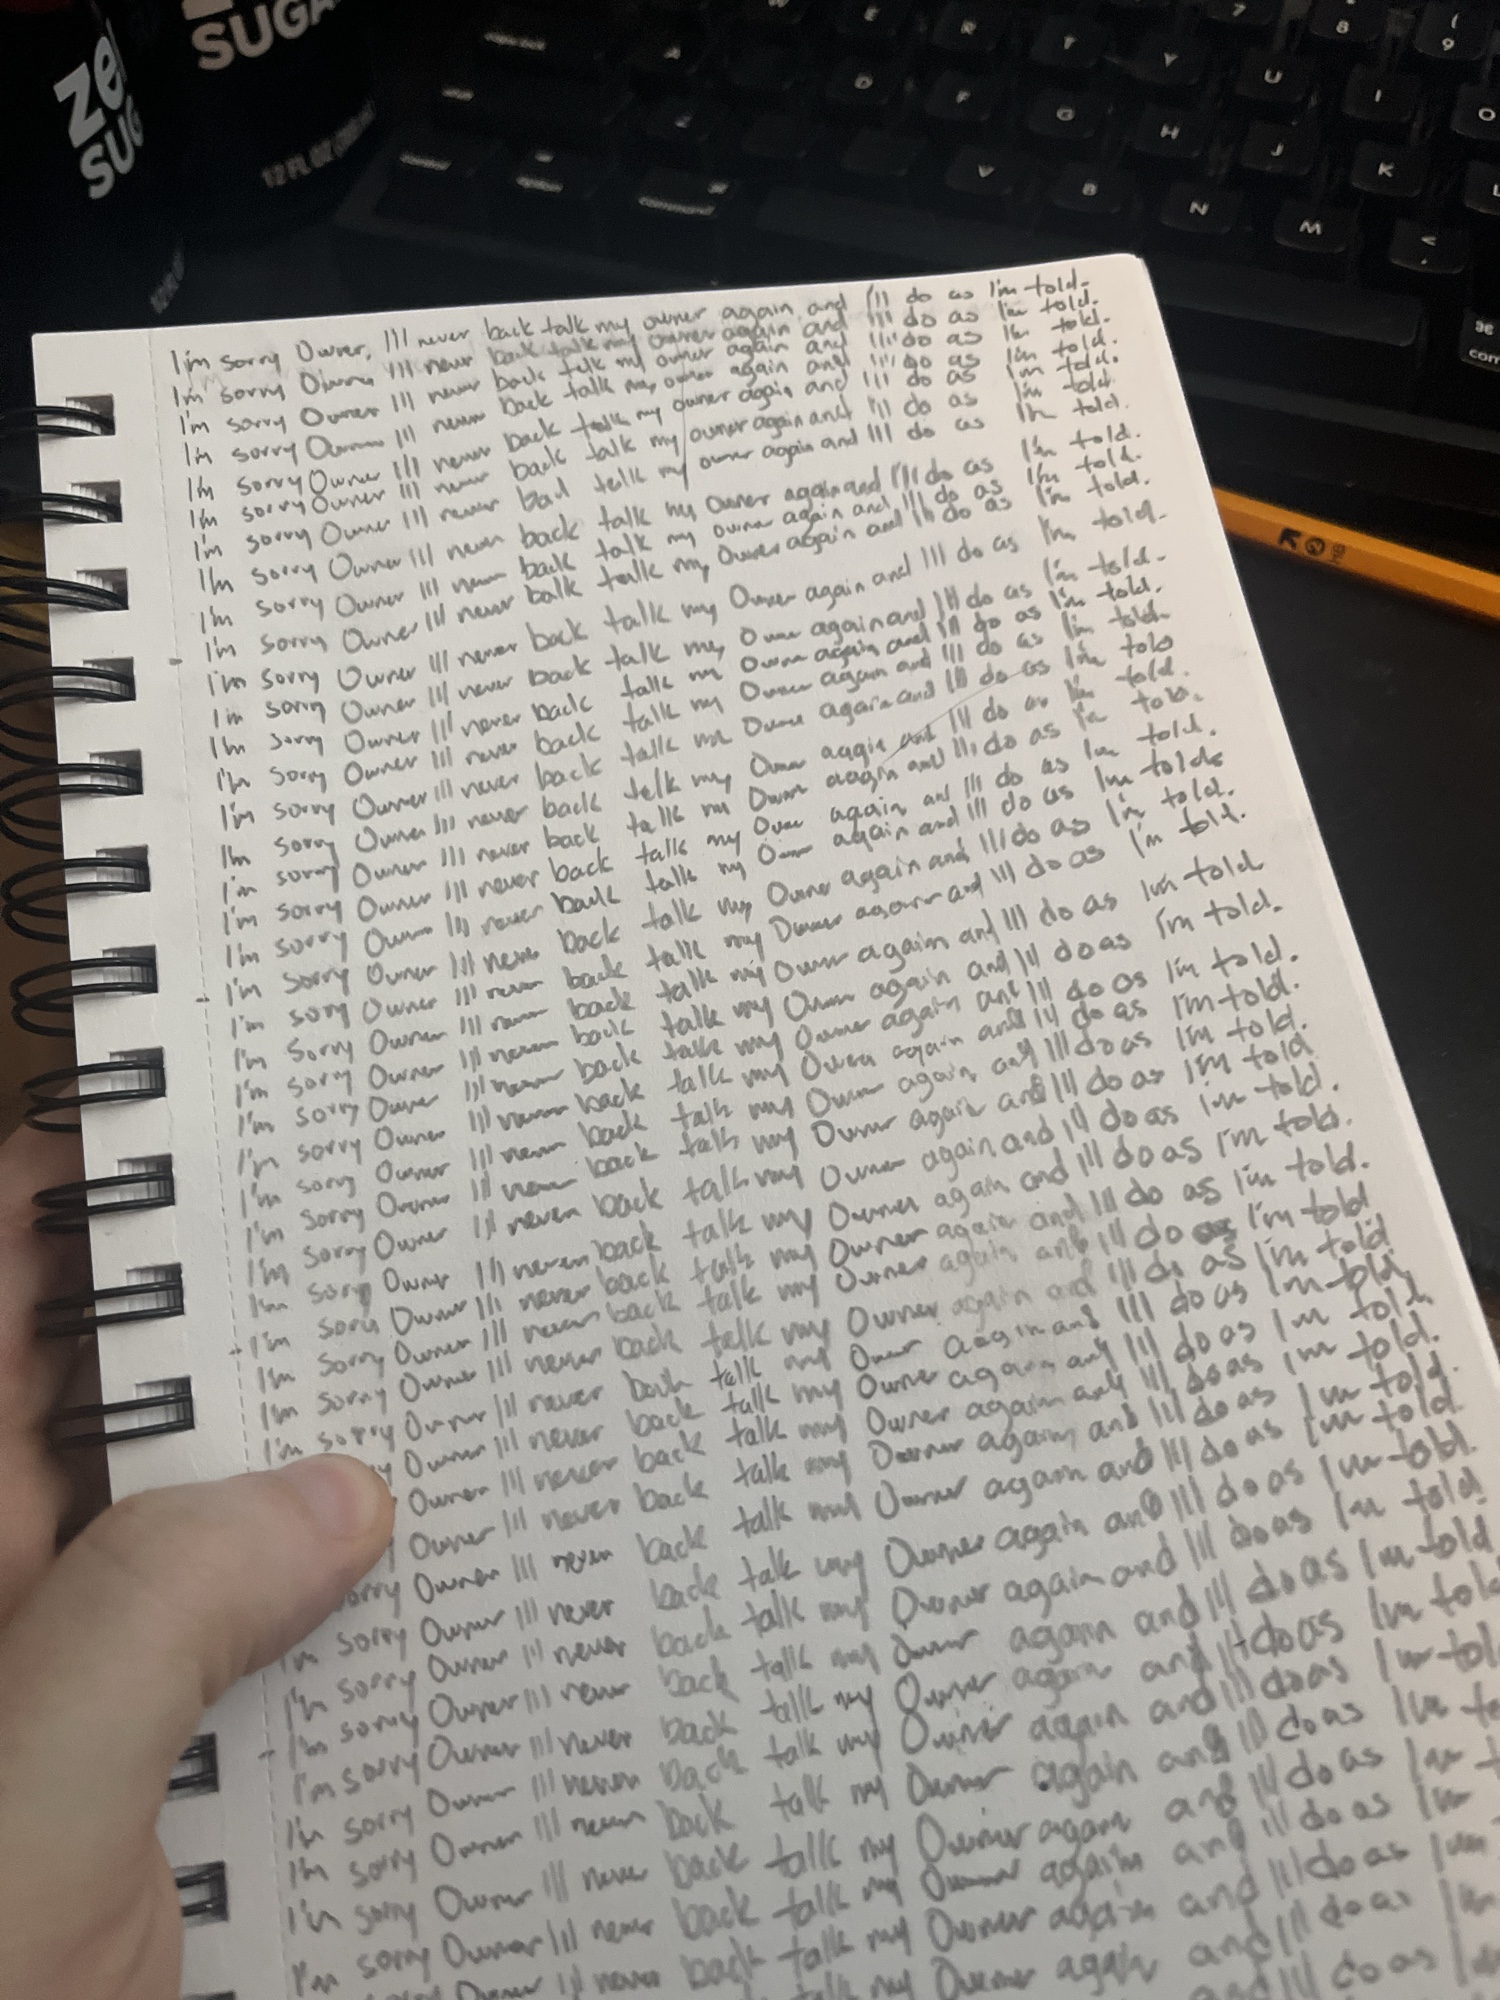 ze
SUG
SUGA
12 FL OZ
W E R T Y 7 8 9
A D F G H J K L U I O
V B N M <
control option command
⌘
com
I'm sorry Owner, I'll never back talk my owner again and I'll do as I'm told.
I'm sorry Owner I'll never back talk my owner again and I'll do as I'm told.
I'm sorry Owner I'll never back talk my owner again and I'll do as I'm told.
I'm sorry Owner I'll never back talk my owner again and I'll do as I'm told.
I'm sorry Owner I'll never back talk my owner again and I'll do as I'm told.
I'm sorry Owner I'll never back talk my owner again and I'll do as I'm told.
I'm sorry Owner I'll never back talk my owner again and I'll do as I'm told.
I'm sorry Owner I'll never back talk my Owner again and I'll do as I'm told.
I'm sorry Owner I'll never back talk my owner again and I'll do as I'm told.
I'm sorry Owner I'll never balk talk my Owner again and I'll do as I'm told.
I'm sorry Owner I'll never back talk my Owner again and I'll do as I'm told.
I'm sorry Owner I'll never back talk my Owner again and I'll do as I'm told.
I'm sorry Owner I'll never back talk my Owner again and I'll do as I'm told.
I'm sorry Owner I'll never back talk my Owner again and I'll do as I'm told.
I'm sorry Owner I'll never back talk my Owner again and I'll do as I'm told
I'm sorry Owner I'll never back talk my Owner again and I'll do as I'm told.
I'm sorry Owner I'll never back talk my Owner again and I'll do as I'm told.
I'm sorry Owner I'll never back talk my Owner again and I'll do as I'm told.
I'm sorry Owner I'll never back talk my Owner again and I'll do as I'm told.
I'm sorry Owner I'll never back talk my Owner again and I'll do as I'm told.
I'm sorry Owner I'll never back talk my Owner again and I'll do as I'm told.
I'm sorry Owner I'll never back talk my Owner again and I'll do as I'm told
I'm sorry Owner I'll never back talk my Owner again and I'll do as I'm told.
I'm sorry Owner I'll never back talk my Owner again and I'll do as I'm told.
I'm sorry Owner I'll never back talk my Owner again and I'll do as I'm told.
I'm sorry Owner I'll never back talk my Owner again and I'll do as I'm told.
I'm sorry Owner I'll never back talk my Owner again and I'll do as I'm told
I'm sorry Owner I'll never back talk my Owner again and I'll do as I'm told.
I'm sorry Owner I'll never back talk my Owner again and I'll do as I'm told.
I'm sorry Owner I'll never back talk my Owner again and I'll do as I'm told.
I'm sorry Owner I'll never back talk my Owner again and I'll do as I'm told
I'm sorry Owner I'll never back talk my Owner again and I'll do as I'm told
I'm sorry Owner I'll never back talk my Owner again and I'll do as I'm told.
Owner I'll never back talk my Owner again and I'll do as I'm told.
Owner I'll never back talk my Owner again and I'll do as I'm told.
sorry Owner I'll never back talk my Owner again and I'll do as I'm told.
I'm sorry Owner I'll never back talk my Owner again and I'll do as I'm told.
I'm sorry Owner I'll never back talk my Owner again and I'll do as I'm told.
I'm sorry Owner I'll never back talk my Owner again and I'll do as I'm told.
I'm sorry Owner I'll never back talk my Owner again and I'll do as I'm told
I'm sorry Owner I'll never back talk my Owner again and I'll do as I'm told
I'm sorry Owner I'll never back talk my Owner again and I'll do as I'm
I'm sorry Owner I'll never back talk my Owner again and I'll do as I'm
I'm sorry Owner I'll never back talk my Owner again and I'll do as
Owner I'll never back talk my Owner again and I'll do as